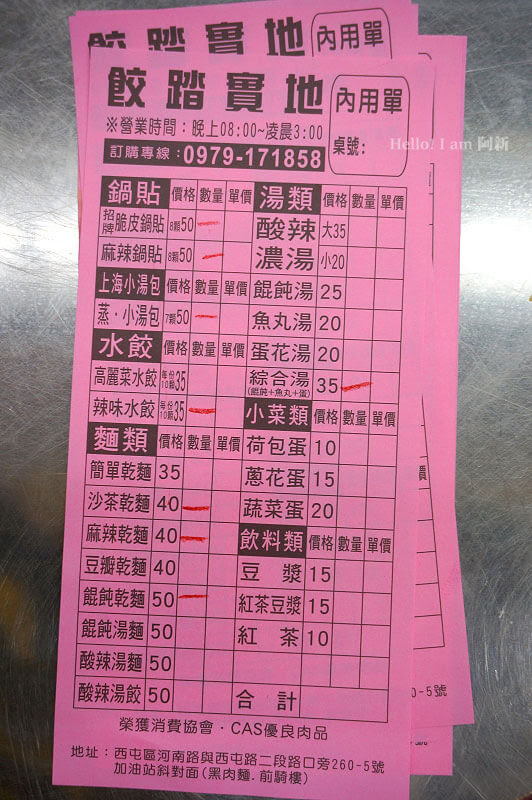 餃踏實地
內用單
餃踏實地
內用單
桌號:
※營業時間：晚上08:00~凌晨3:00
訂購專線：0979-171858
Hello! I am 阿新
鍋貼 價格 數量 單價
招牌脆皮鍋貼 8顆50
麻辣鍋貼 8顆50
上海小湯包 價格 數量 單價
蒸・小湯包 7顆50
水餃 價格 數量 單價
高麗菜水餃 每份10顆35
辣味水餃 每份10顆35
麵類 價格 數量 單價
簡單乾麵 35
沙茶乾麵 40
麻辣乾麵 40
豆瓣乾麵 40
餛飩乾麵 50
餛飩湯麵 50
酸辣湯麵 50
酸辣湯餃 50
湯類 價格 數量 單價
酸辣 大35
濃湯 小20
餛飩湯 25
魚丸湯 20
蛋花湯 20
綜合湯 35
(餛飩+魚丸+蛋)
小菜類 價格 數量 單價
荷包蛋 10
蔥花蛋 15
蔬菜蛋 20
飲料類 價格 數量 單價
豆漿 15
紅茶豆漿 15
紅茶 10
合計
榮獲消費協會・CAS優良肉品
地址：西屯區河南路與西屯路二段路口旁260-5號
加油站斜對面(黑肉麵.前騎樓)
0-5號